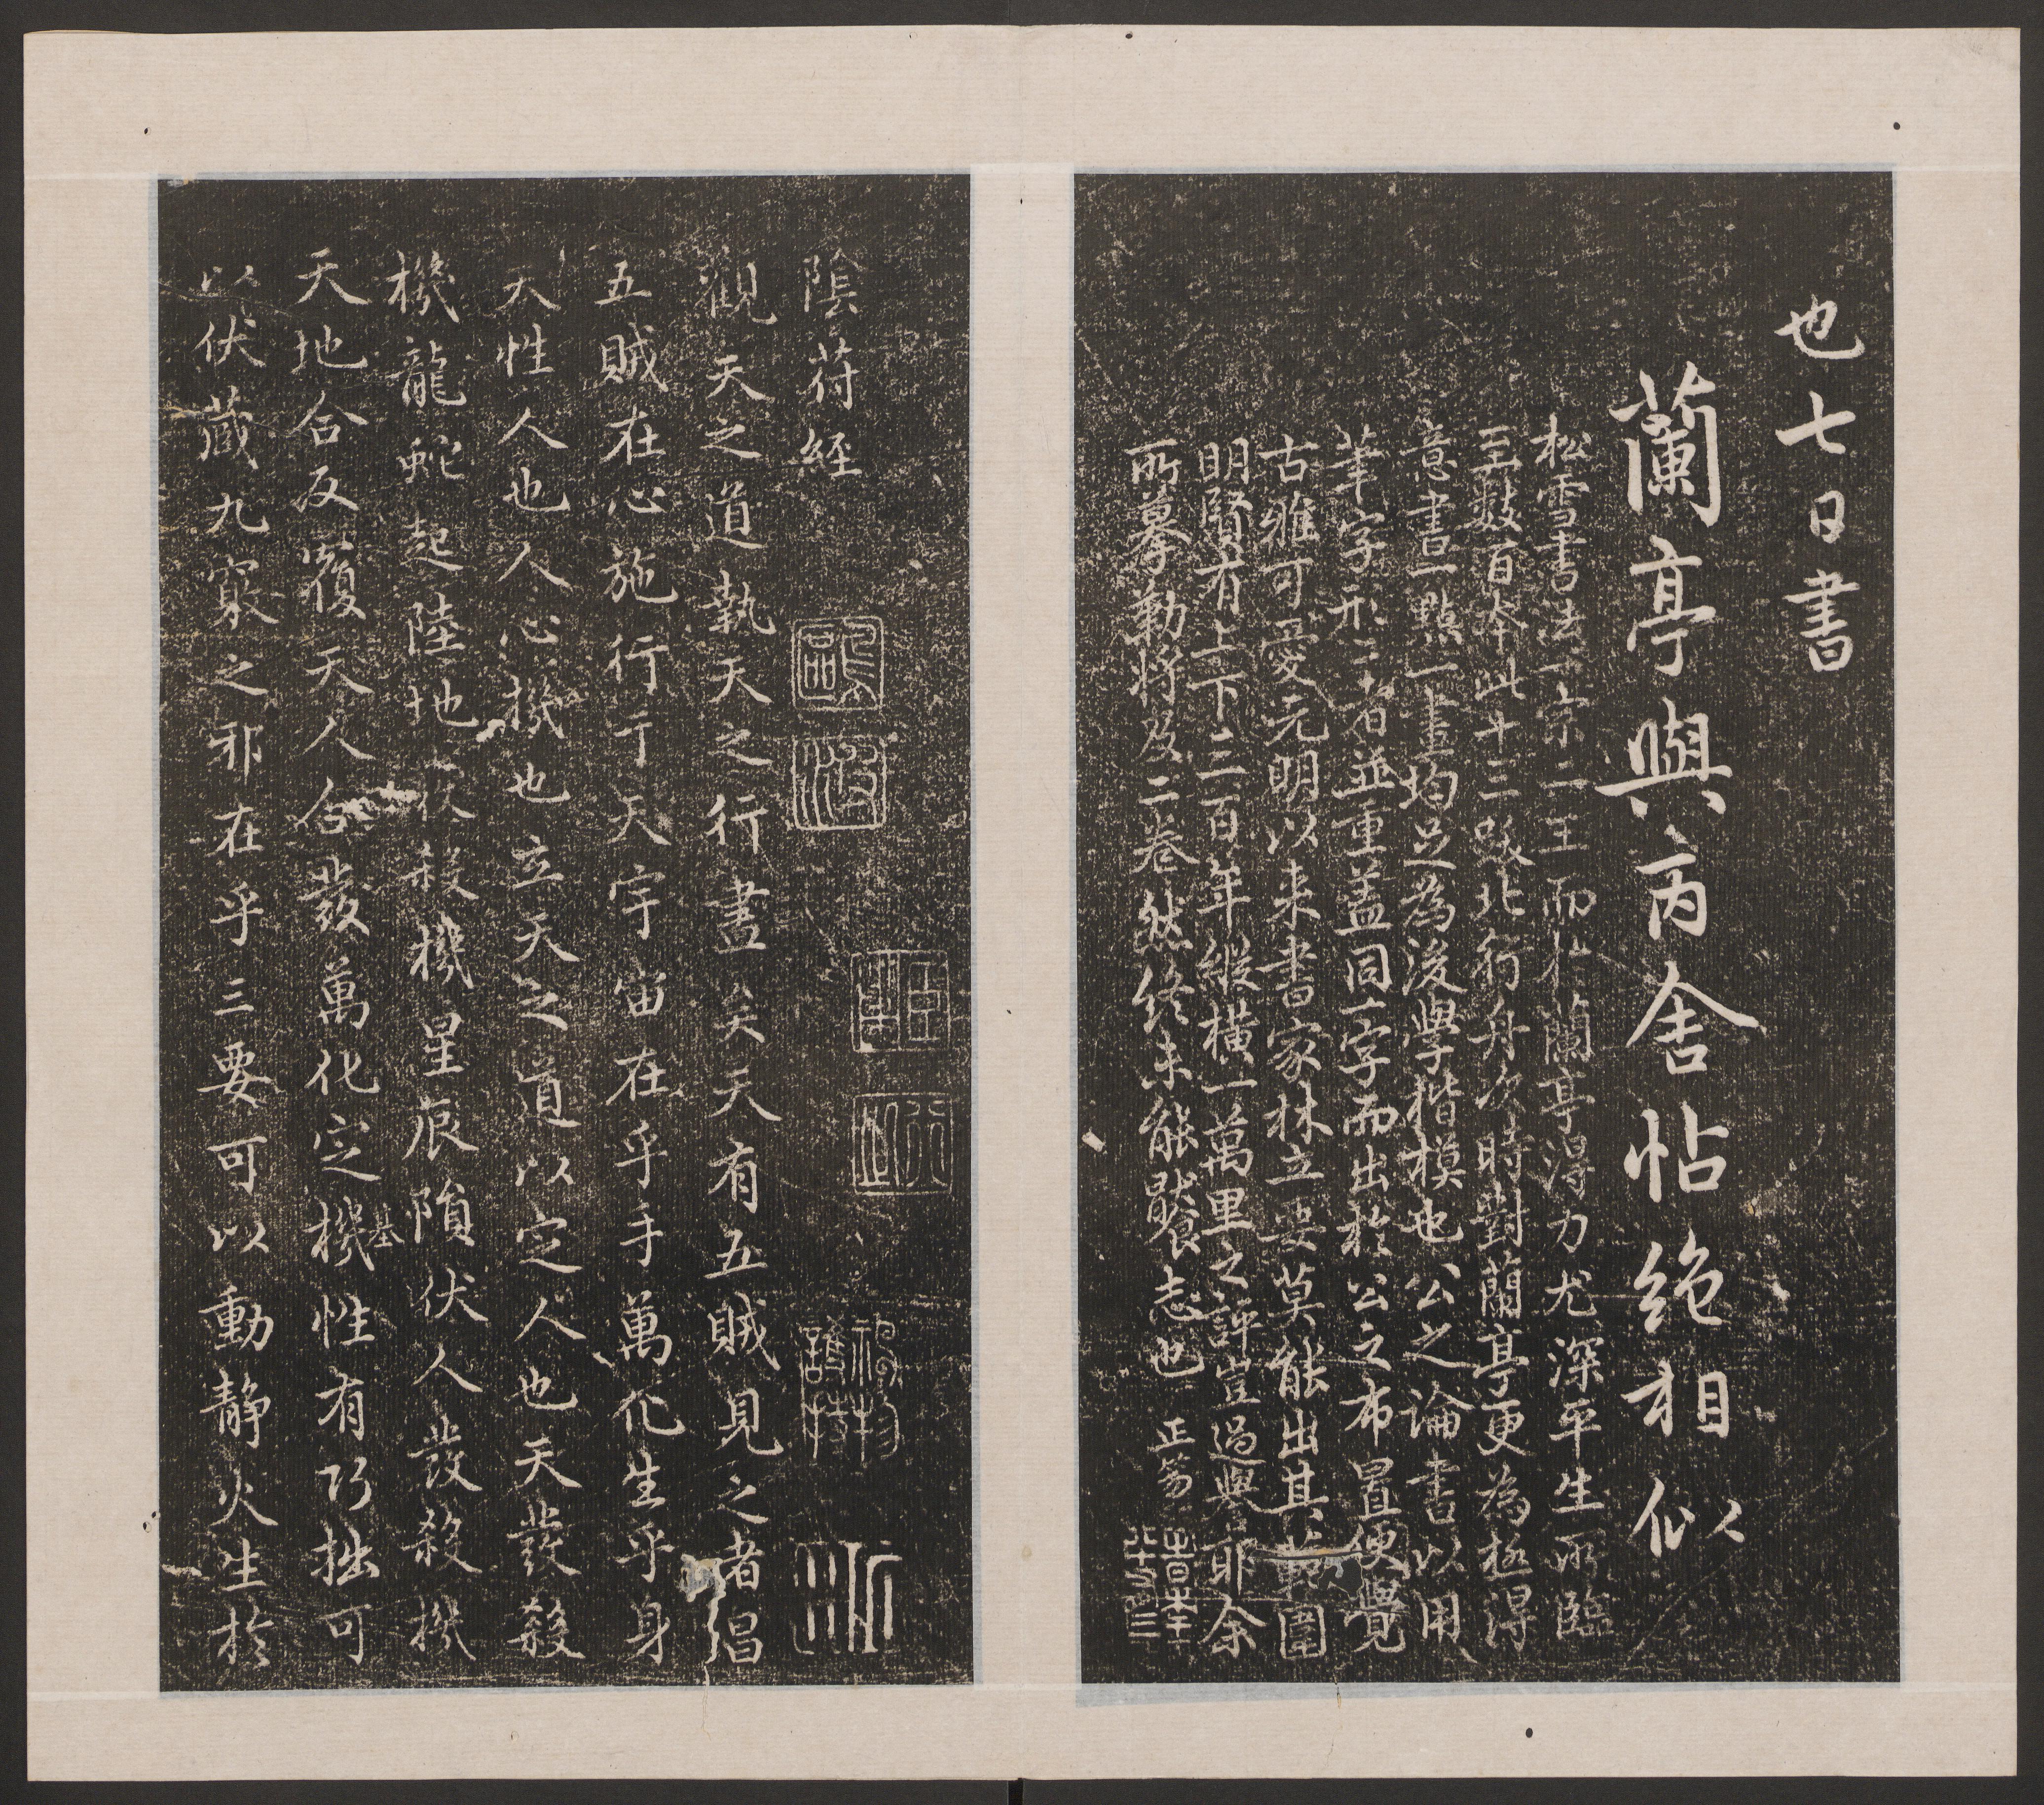 也七日書
蘭亭與丙舍帖絶相似
松雪書法一宗二王而於蘭亭得力尤深平生所臨
至數百本此十三跋北行舟次時對蘭亭更爲極得
意書一點一畫均足爲後學楷模也 公之論書以用
筆字形二者並重蓋同一字而出於 公之布置便覺
古雅可愛元明以来書家林立要莫能出其範圍
明賢有上下三百年縱橫一萬里之評豈過與耶余
所摹勒將及二卷然終未能饜志也 正誼
陰符經
觀天之道執天之行盡矣天有五賊見之者昌
五賊在心施行于天宇宙在乎手萬化生乎身
天性人也人心機也立天之道以定人也天發殺
機龍蛇起陸地發殺機星辰隕伏人發殺機
天地合反覆天人合發萬化定機基性有巧拙可
以伏藏九竅之邪在乎三要可以動静火生於